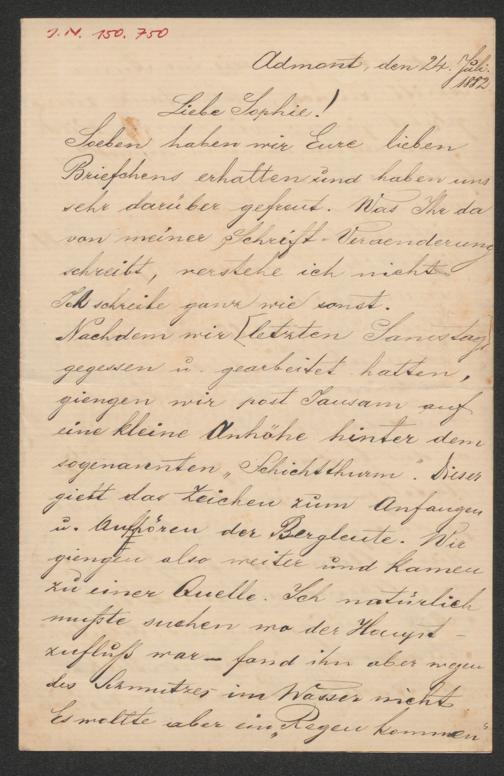 I.N. 150.750
Admont, den 24. Juli.
1882
Liebe Sophie!
Soeben haben wir Eure lieben
Briefchens erhalten und haben uns
sehr darüber gefreut. Was Ihr da
von meiner Schrift-Veraenderung
schreibt, verstehe ich nicht
Ich schreibe ganz wie sonst.
Nachdem wir [letzten Samstag]
gegessen u. gearbeitet hatten,
giengen wir auf
eine kleine Anhöhe hinter dem
sogenannten „Schichtthurm". Dieser
giebt das Zeichen zum Anfangen
u. Aufhören der Bergleute. Wir
giengen also weiter und kamen
zu einer Quelle. Ich natürlich
mußte suchen wo der Haupt-
zufluß war – fand ihn aber wegen
des Schmutzes im Wasser nicht
Es wollte aber ein „Regen kommen"